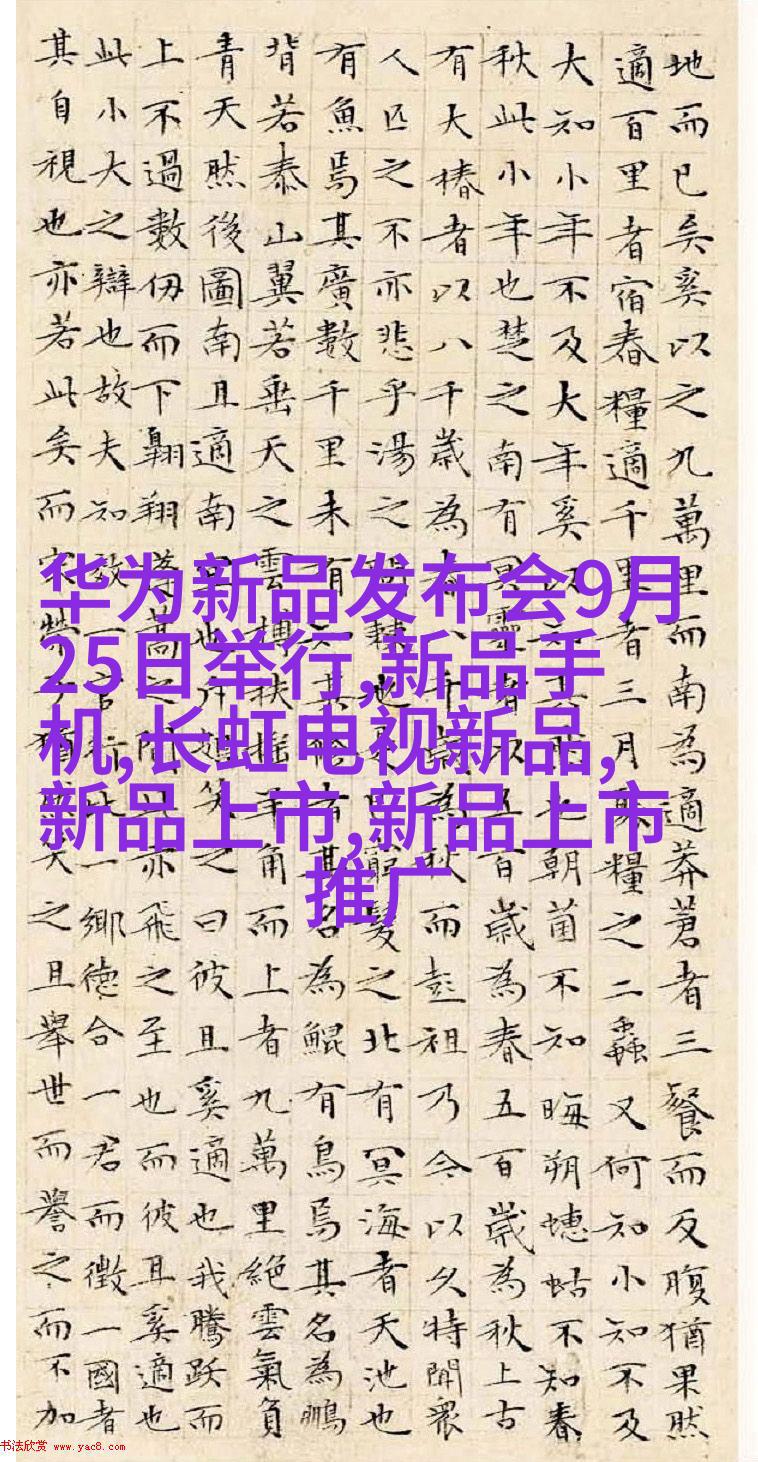 地而已矣奚以之九萬里而南為適莽蒼者三餐而反腹猶果然
適百里者宿舂糧適千里者三月聚糧之二蟲又何知小知不及
大知小年不及大年奚以知其然也朝菌不知晦朔蟪蛄不知春
秋此小年也楚之南有冥靈者以五百歲為春五百歲為秋上古
有大椿者以八千歲為春八千歲為秋而彭祖乃今以久特聞衆
人匹之不亦悲乎湯之問棘也是已窮髮之北有冥海者天池也
有魚焉其廣數千里未有知其脩者其名為鯤有鳥焉其名為鵬
背若泰山翼若垂天之雲摶扶搖羊角而上者九萬里絕雲氣負
青天然後圖南且適南冥也斥鴳笑之曰彼且奚適也我騰躍而
上不過數仞而下翱翔蓬蒿之間此亦飛之至也而彼且奚適也
此小大之辯也故夫知效一官行比一鄉德合一君而徵一國者
其自視也亦若此矣而宋榮子猶然笑之且舉世而譽之而不加
华为新品发布会9月
25日举行,新品手
机,长虹电视新品,
新品上市,新品上市
推广
书法欣赏 www.yac8.com